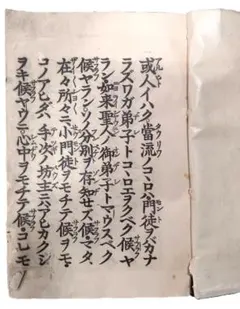 或人イハク當流ノコヽロハ門徒ヲバカナ
ラズワガ弟子トコヽロエヲクベク候ヤ
ラン如來聖人ノ御弟子トマウスベク
候ヤランソノ分別ヲ存知セズ候・マタ
在々所々ニ小門徒ヲモチテ候ヲモ・
コノアヒダハ手次ノ坊主ニハアヒカクシ
ヲキ候ヤウニ心中ヲモチテ候・コレモ